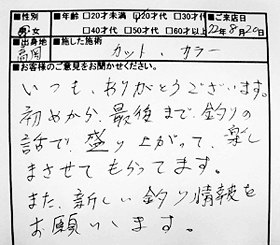 ■性別 ■年齢 □20才未満 ☑20才代 □30才代 ■ご来店日
男・女 □40才代 □50才代 □60才以上 22年8月20日
■出身地 ■施した施術
高岡 カット、カラー
■お客様のご意見をお聞かせください。
いつも、ありがとうございます。
初めから、最後まで、釣りの
話で、盛り上がって、楽し
まさせてもらってます。
また、新しい釣り情報を
お願いします。